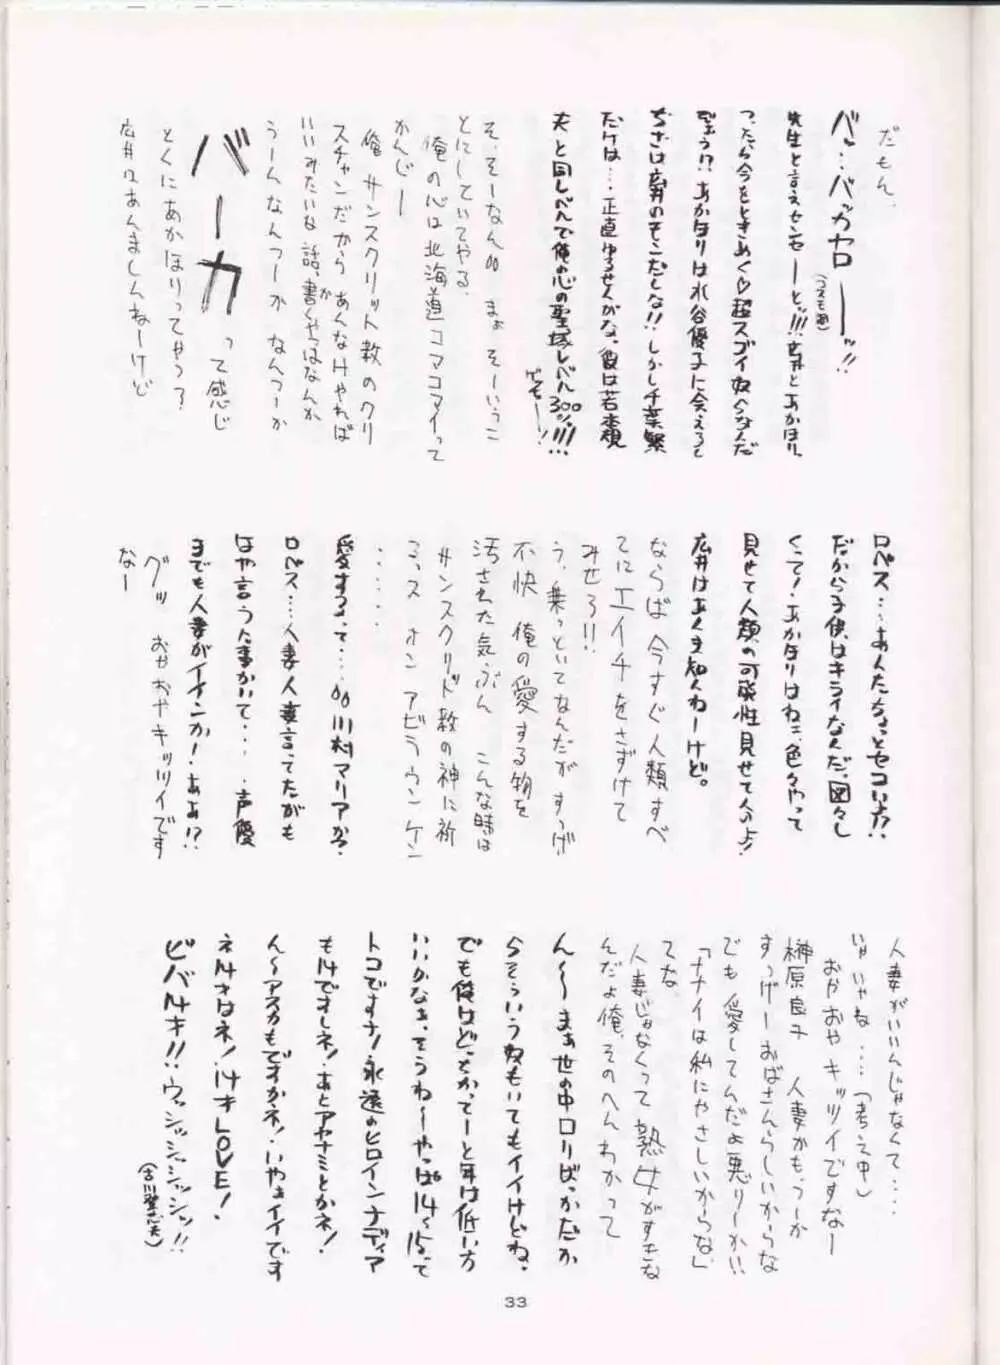 だもん。
バ…バッカヤローッ!!
(コスモ風)
先生と言えセンセーーとッ!!!広井とあかほり、
つったら今をときめく♡超スゴイ奴らなんだ
ぞぉう!?あかほりは水谷優子に会えるって
ちさは広井のそこだしな!!しかし千葉繁
だけは…正直ゆるせんがな。彼は若本規
夫と同レベルで俺の心の聖域レベル300%!!!
ゲェモーー!!
そ、そーなん。。まぁ そーいうこ
とにしていてやる。
俺の心は北海道ココマコマイって
かんじー
俺 サンスクリット教のクリ
スチャンだから あんなけやれば
いいみたいな話っか書くやつはなんか
うーんなんつーか なんつーか
バーカって感じ
とくにあかほりってやつ?
広井はあんましんねーけど
ロペス…あんたちょっとセコい!?
だから子供はキライなんだ。図々し
くって!あかほりはねェ、色々やって
見せて人類の可能性見せて人のよ!
広井はあくま知んねーけど。
ならば今すぐ人類すべ
てにエイチをさずけて
みせろ!!
う、乗っといてなんだがすっげー
不快 俺の愛する物を
汚された気ぶん こんな時は
サンスクリッド教の神に祈
るっス オン アビラウンケン
・・・・・
愛するって…。。川村マリアか?
ロペス……人妻人妻言ってたがも
はや言うた事かいて… 声優
までも人妻がイインか!ああ!?
グッ おやおやキッツイです
なー
人妻がいいんじゃなくて…
いゃいゃね……(考え中)
おやおや キッツイですなー
榊原良子 人妻かも、つーか
すっげーおばさんらしいからな
でも 愛してんだよ悪りーかい!
「ナナイは私にやさしいからな」
てな。
人妻じゃなくって 熟女がすきな
んだよ俺、そのへんわかって
ん〜〜まぁ世の中ロリばっかだか
らそういう奴もいてもイイけどね。
でも俺はどっちかってーと年は低い方
いいかなぁ、そうねーやっぱ14〜15って
トコですナ!永遠のヒロインナディア
も14ですしネ!あとアヤナミとかネ!
ん〜アスカもですかネ!いやぁイイです
ネ14才はネ!14才LOVE!
ビバ14才!!ウッシッシッシッシッ!!
(古川登志夫)
33